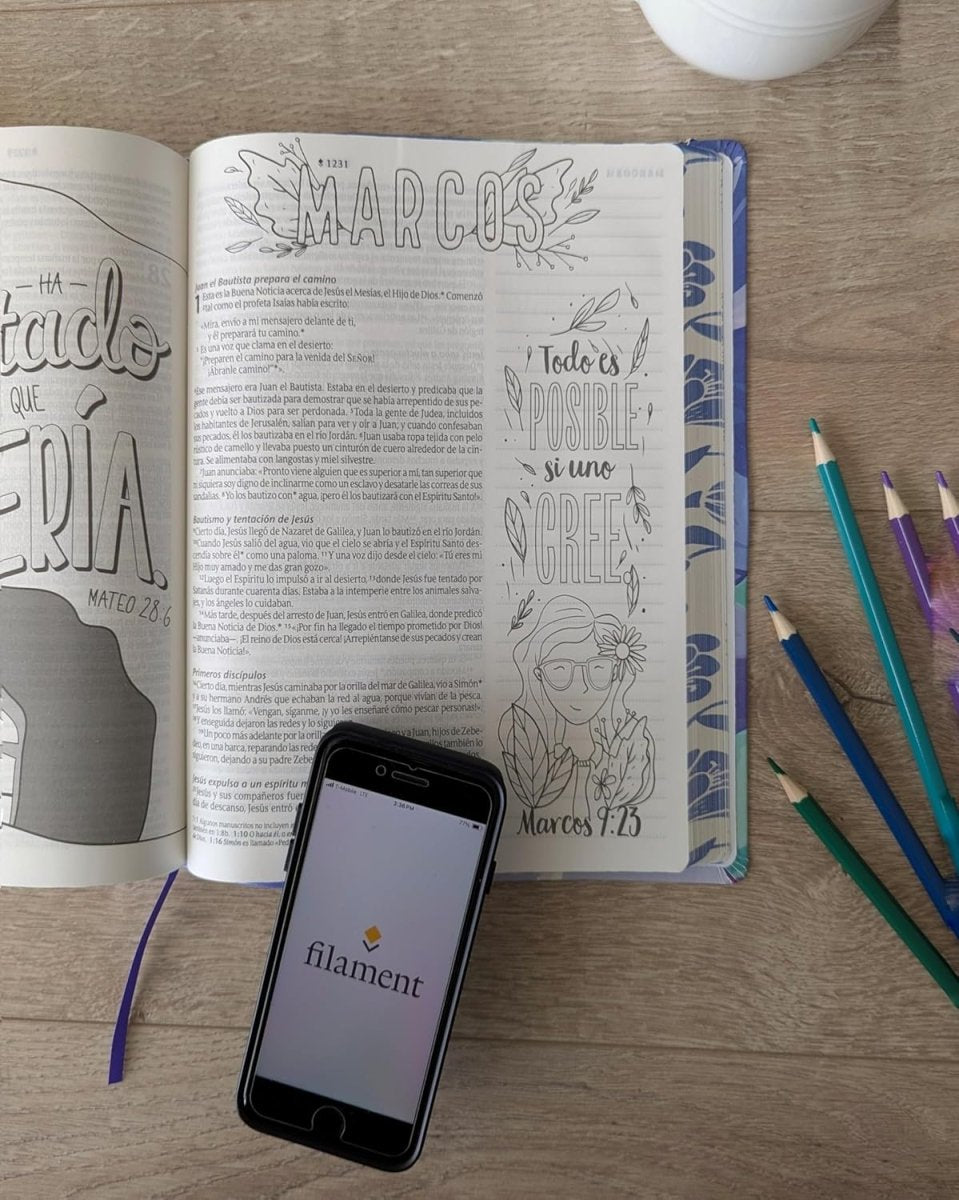 HA
tado
QUE
ERÍA.
MATEO 28:6
1231
MARCOS
Juan el Bautista prepara el camino
1 Esta es la Buena Noticia acerca de Jesús el Mesías, el Hijo de Dios.* Comenzó
²tal como el profeta Isaías había escrito:
«Mira, envío a mi mensajero delante de ti,
y él preparará tu camino.*
³ Es una voz que clama en el desierto:
"¡Preparen el camino para la venida del SEÑOR!
¡Ábranle camino!"*».
⁴Ese mensajero era Juan el Bautista. Estaba en el desierto y predicaba que la
gente debía ser bautizada para demostrar que se había arrepentido de sus pe-
cados y vuelto a Dios para ser perdonada. ⁵Toda la gente de Judea, incluidos
los habitantes de Jerusalén, salían para ver y oír a Juan; y cuando confesaban
sus pecados, él los bautizaba en el río Jordán. ⁶Juan usaba ropa tejida con pelo
rústico de camello y llevaba puesto un cinturón de cuero alrededor de la cin-
tura. Se alimentaba con langostas y miel silvestre.
⁷Juan anunciaba: «Pronto viene alguien que es superior a mí, tan superior que
ni siquiera soy digno de inclinarme como un esclavo y desatarle las correas de sus
sandalias. ⁸Yo los bautizo con* agua, ¡pero él los bautizará con el Espíritu Santo!».
Bautismo y tentación de Jesús
⁹Cierto día, Jesús llegó de Nazaret de Galilea, y Juan lo bautizó en el río Jordán.
¹⁰Cuando Jesús salió del agua, vio que el cielo se abría y el Espíritu Santo des-
cendía sobre él* como una paloma. ¹¹Y una voz dijo desde el cielo: «Tú eres mi
Hijo muy amado y me das gran gozo».
¹²Luego el Espíritu lo impulsó a ir al desierto, ¹³donde Jesús fue tentado por
Satanás durante cuarenta días. Estaba a la intemperie entre los animales salva-
jes, y los ángeles lo cuidaban.
¹⁴Más tarde, después del arresto de Juan, Jesús entró en Galilea, donde predicó
la Buena Noticia de Dios.* ¹⁵«¡Por fin ha llegado el tiempo prometido por Dios!
—anunciaba—. ¡El reino de Dios está cerca! ¡Arrepiéntanse de sus pecados y crean
la Buena Noticia!».
Primeros discípulos
¹⁶Cierto día, mientras Jesús caminaba por la orilla del mar de Galilea, vio a Simón*
y a su hermano Andrés que echaban la red al agua, porque vivían de la pesca.
¹⁷Jesús los llamó: «Vengan, síganme, ¡y yo les enseñaré cómo pescar personas!».
¹⁸Y enseguida dejaron las redes y lo siguieron
¹⁹Un poco más adelante por la orilla y a Juan, hijos de Zebe-
deo, en una barca, reparando las redes también lo
siguieron, dejando a su padre Zebe
Jesús expulsa a un espíritu
²¹Jesús y sus compañeros
día de descanso, Jesús entró
1:1 Algunos manuscritos no incluyen
también en 1:8b. 1:10 O hacia él; o en
de Dios. 1:16 Simón es llamado «Ped
Todo es
POSIBLE
si uno
CREE
Marcos 9:23
T-Mobile LTE
7:36 PM
77%
filament